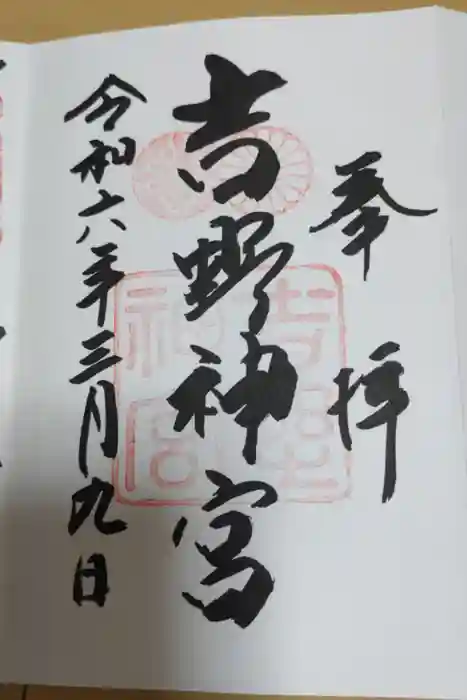 奉拝
吉野神宮
吉野神宮
令和六年三月九日